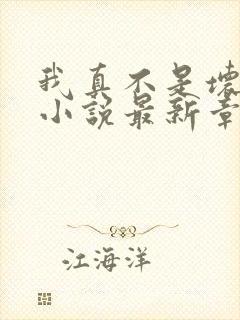 我真不是坏
小说最新章
江海洋